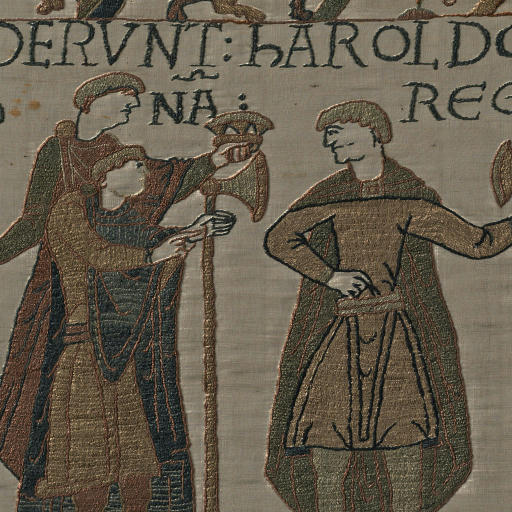 DERVNT : hAROLDO
NA : REG